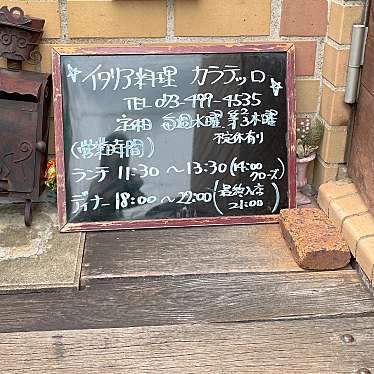 イタリア料理 カラテッロ
TEL 073-499-4535
定休 毎週水曜 第3木曜
不定休有り
(営業時間)
ランチ 11:30 〜 13:30 (14:00 クローズ)
ディナー 18:00 〜 22:00 (最終入店 21:00)